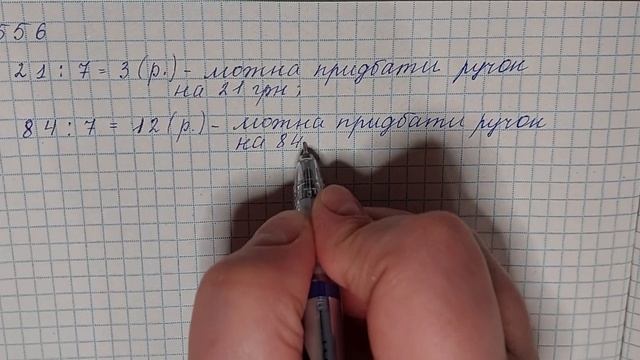 556
21 : 7 = 3 (р.) - можна придбати ручок
на 21 грн;
84 : 7 = 12 (р.) - можна придбати ручок
на 84